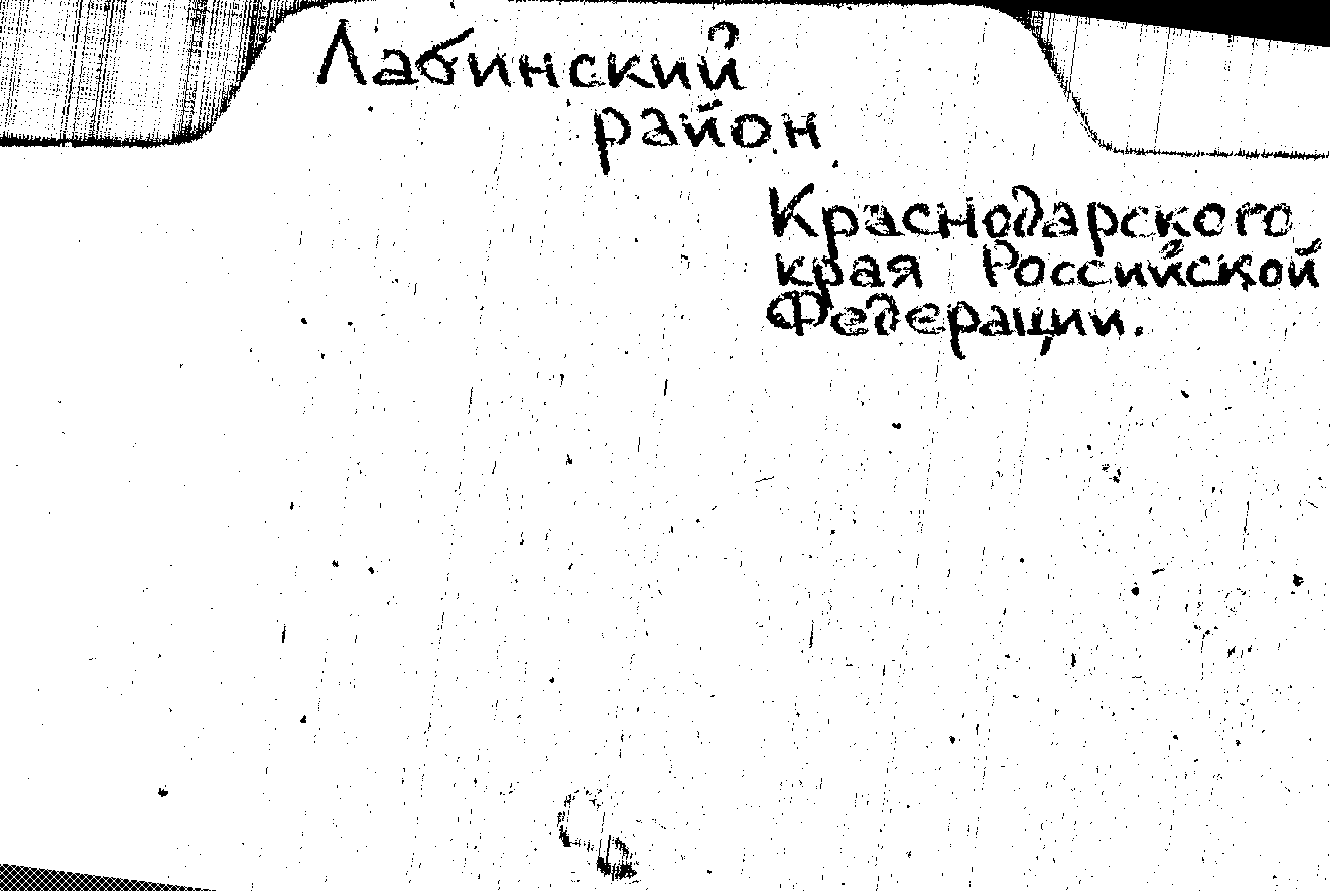 Лабинский
район
Краснодарского
края Российской
Федерации.